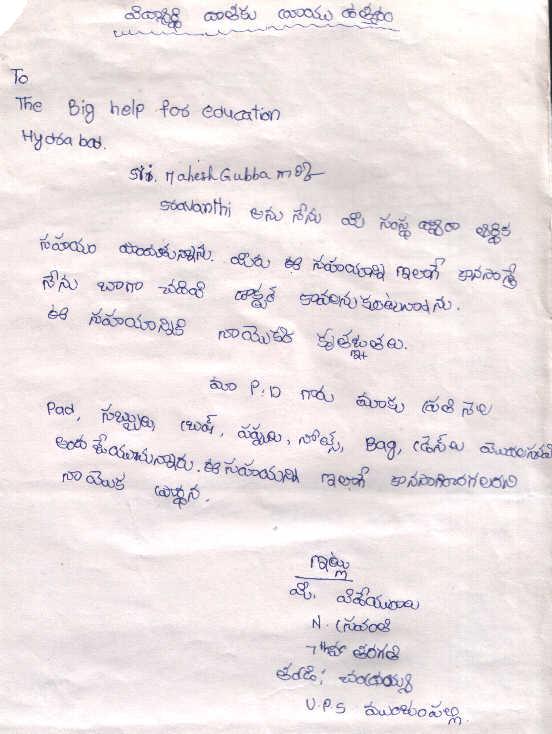 విద్యార్థి దాతకు వ్రాయు ఉత్తరం
To
The Big help for education
Hydrabad.
Sir. Mahesh Gubba గారికి
Sravanthi అను నేను మీ సంస్థ ద్వారా ఆర్థిక
సహయం పొందుతున్నాను. మీరు ఈ సహయాన్ని ఇలాగే కొనసాగిస్తే
నేను బాగా చదివి డాక్టర్ కావాలనుకుంటున్నాను.
ఈ సహయానికి నాయొక్క కృతజ్ఞతలు.
మా P.D గారు మాకు ప్రతి నెల
Pad, సబ్బులు, బ్రష్, పెన్నులు, నోట్స్, Bag, డ్రెస్‌లు మొదలగునవి
అందచేయుచున్నారు. ఈ సహయాన్ని ఇలాగే కొనసాగించగలరని
నా యొక్క ప్రార్థన.
ఇట్లు
మీ విధేయురాలు
N. స్రవంతి
7th తరగతి
తండ్రి: చంద్రయ్య
U.P.S